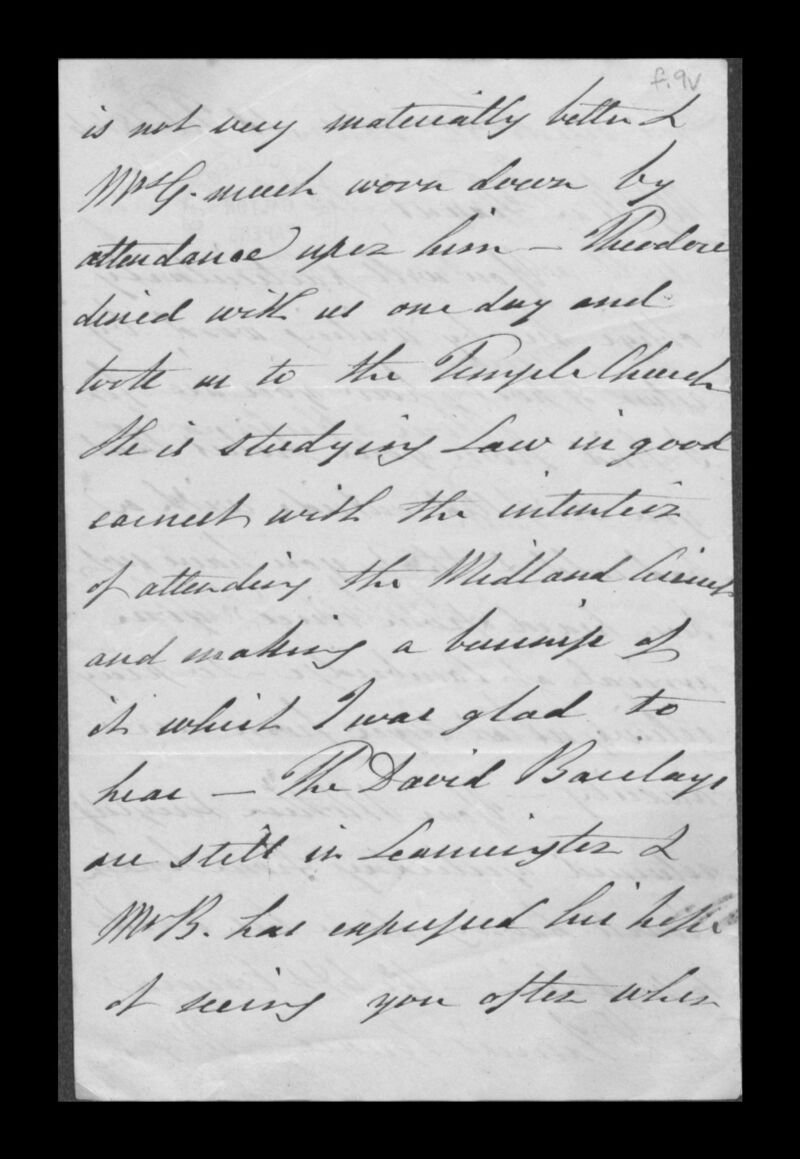 f.9v
is not very materially better &
Mrs G. much worn down by
attendance upon him – Theodore
dined with us one day and
took us to the Temple Church
He is studying Law in good
earnest with the intention
of attending the Midland Circuit
and making a business of
it which I was glad to
hear – The David Barclays
are still in Leamington &
Mr B. has expressed his hope
of seeing you often when